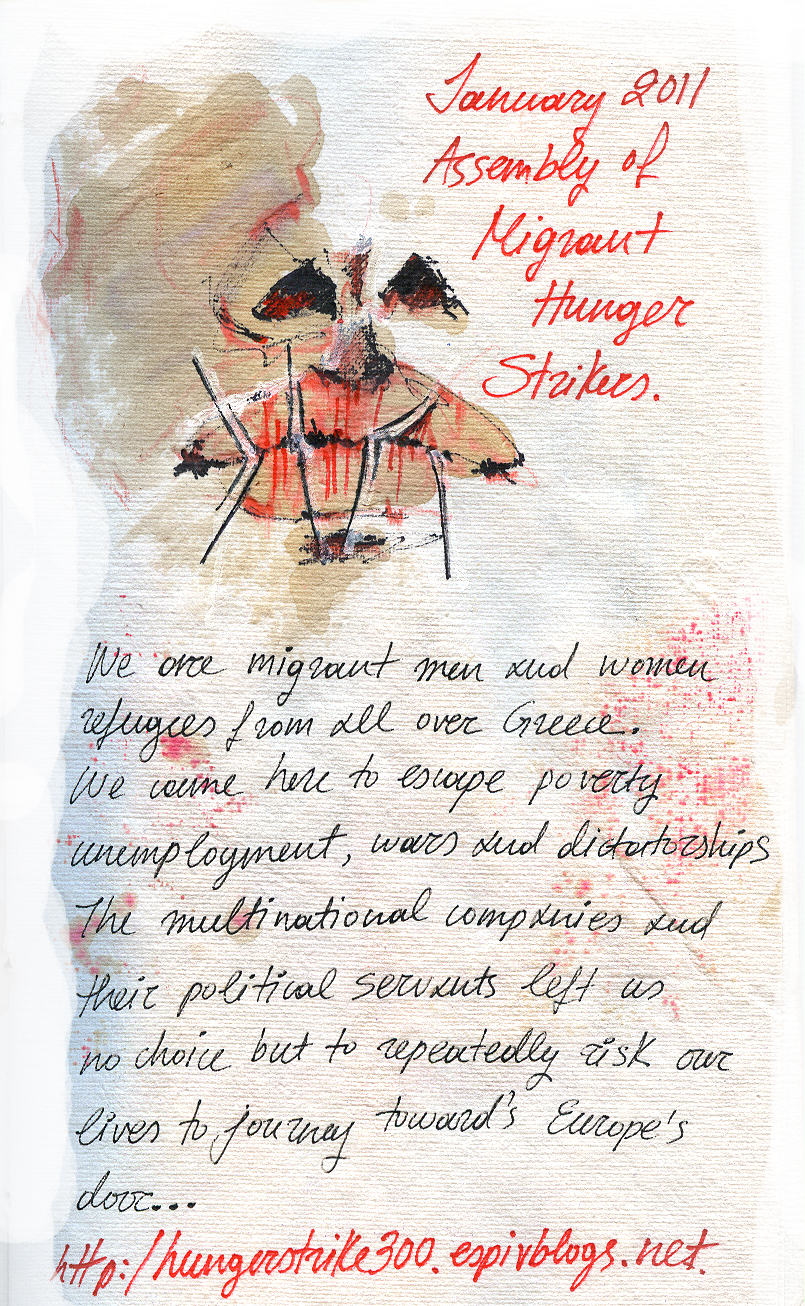 January 2011
Assembly of
Migrant
Hunger
Strikers.
We are migrant men and women
refugees from all over Greece.
We came here to escape poverty
unemployment, wars and dictatorships
The multinational companies and
their political servants left us
no choice but to repeatedly risk our
lives to journey toward's Europe's
door...
http:/hungerstrike300.espivblogs.net.